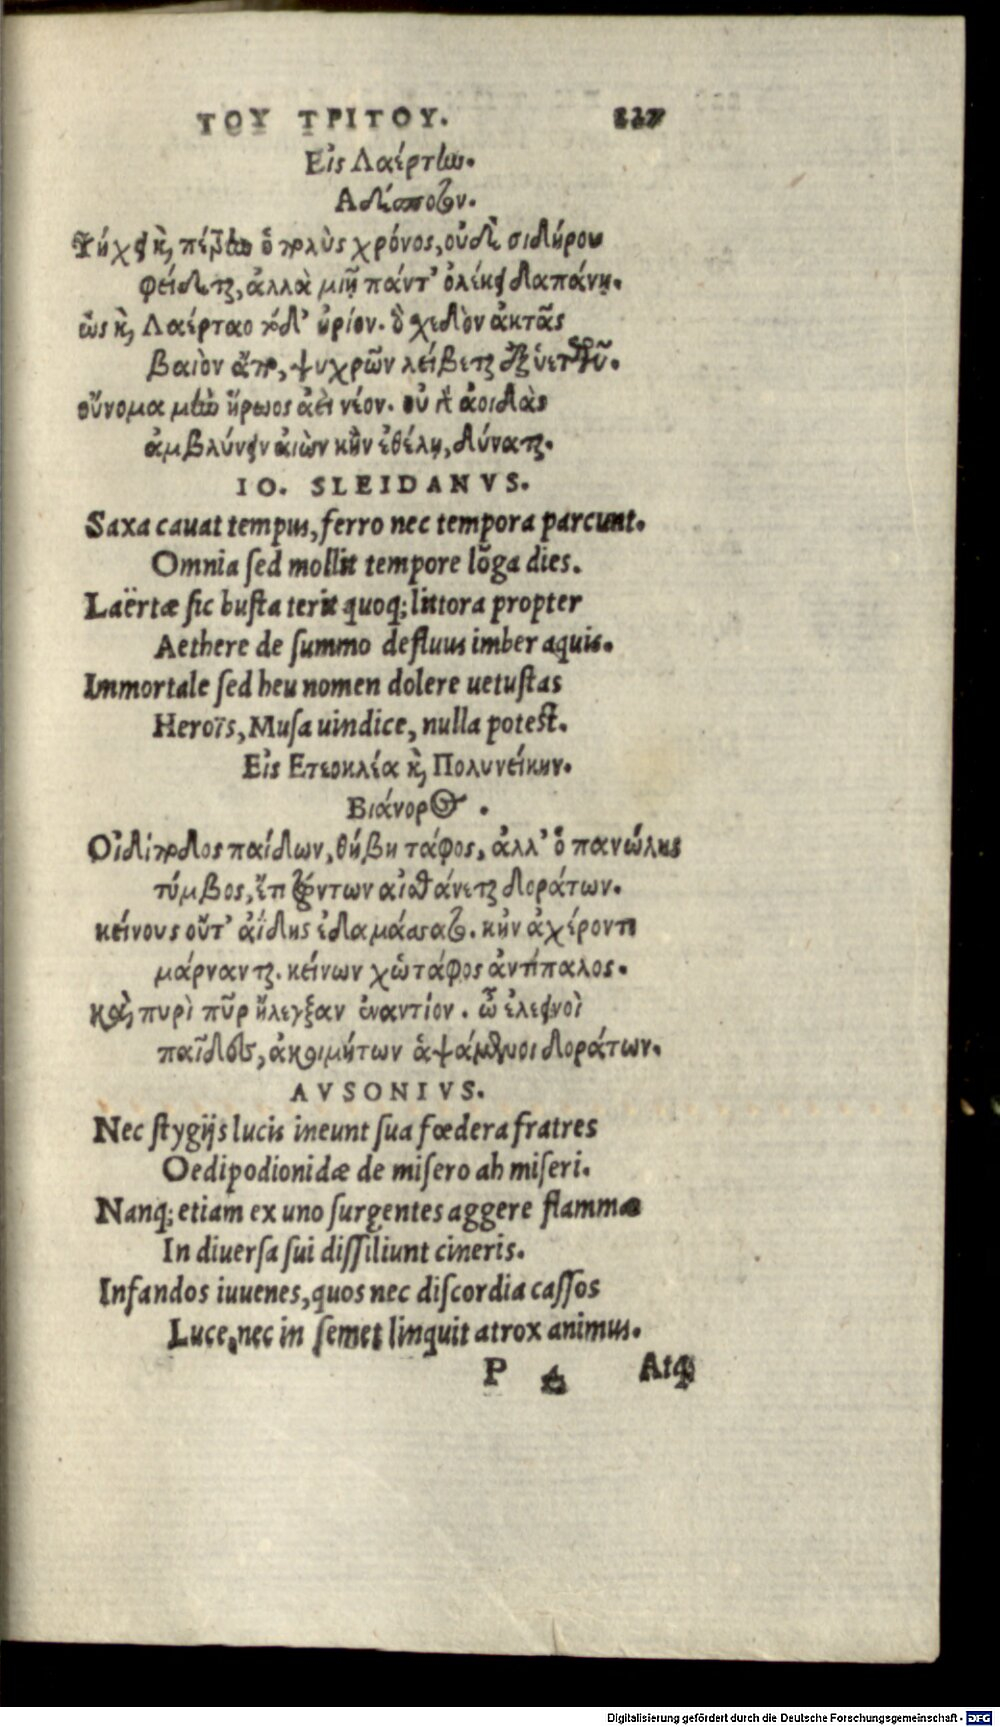 ΤΟΥ ΤΡΙΤΟΥ. 227
Εἰς Λαέρτην.
Αδέσποτον.
Ψήχει καὶ πέτρην ὁ πολὺς χρόνος, οὐδὲ σιδήρου
φείδεται, ἀλλὰ μιῇ πάντ' ὀλέκει δαπάνῃ.
ὣς καὶ Λαέρταο τόδ' ἠρίον. ὃ σχεδὸν ἀκτᾶς
βαιὸν ἄπο, ψυχρῶν λείβεται ἐξ ὑετοῦ.
οὔνομα μὴν ἥρωος ἀεὶ νέον. οὐ γὰρ ἀοιδὰς
ἀμβλύνειν ἀιὼν κἢν ἐθέλῃ, δύναται.
IO. SLEIDANVS.
Saxa cauat tempus, ferro nec tempora parcunt.
Omnia sed mollit tempore lõga dies.
Laërtæ sic busta terit quoq; littora propter
Aethere de summo defluus imber aquis.
Immortale sed heu nomen dolere uetustas
Heroïs, Musa uindice, nulla potest.
Εἰς Ετεοκλέα καὶ Πολυνείκην.
Βιάνορος.
Οἰδίποδος παίδων, θήβη τάφος, ἀλλ' ὁ πανώλης
τύμβος, ἔτι ζώντων αἰσθάνεται δοράτων.
κείνους οὔτ' ἀΐδης ἐδαμάσσατο. κἠν ἀχέροντι
μάρνανται. κείνων χὡ τάφος ἀντίπαλος.
καὶ πυρὶ πῦρ ἤλεγξαν ἐναντίον. ὦ ἐλεεινοὶ
παῖδες, ἀκοιμήτων ἁψάμενοι δοράτων.
AVSONIVS.
Nec stygijs lucis ineunt sua fœdera fratres
Oedipodionidæ de misero ah miseri.
Nanq; etiam ex uno surgentes aggere flammæ
In diuersa sui dissiliunt cineris.
Infandos iuuenes, quos nec discordia cassos
Luce, nec in semet linquit atrox animus.
P Atq;
Digitalisierung gefördert durch die Deutsche Forschungsgemeinschaft - DFG